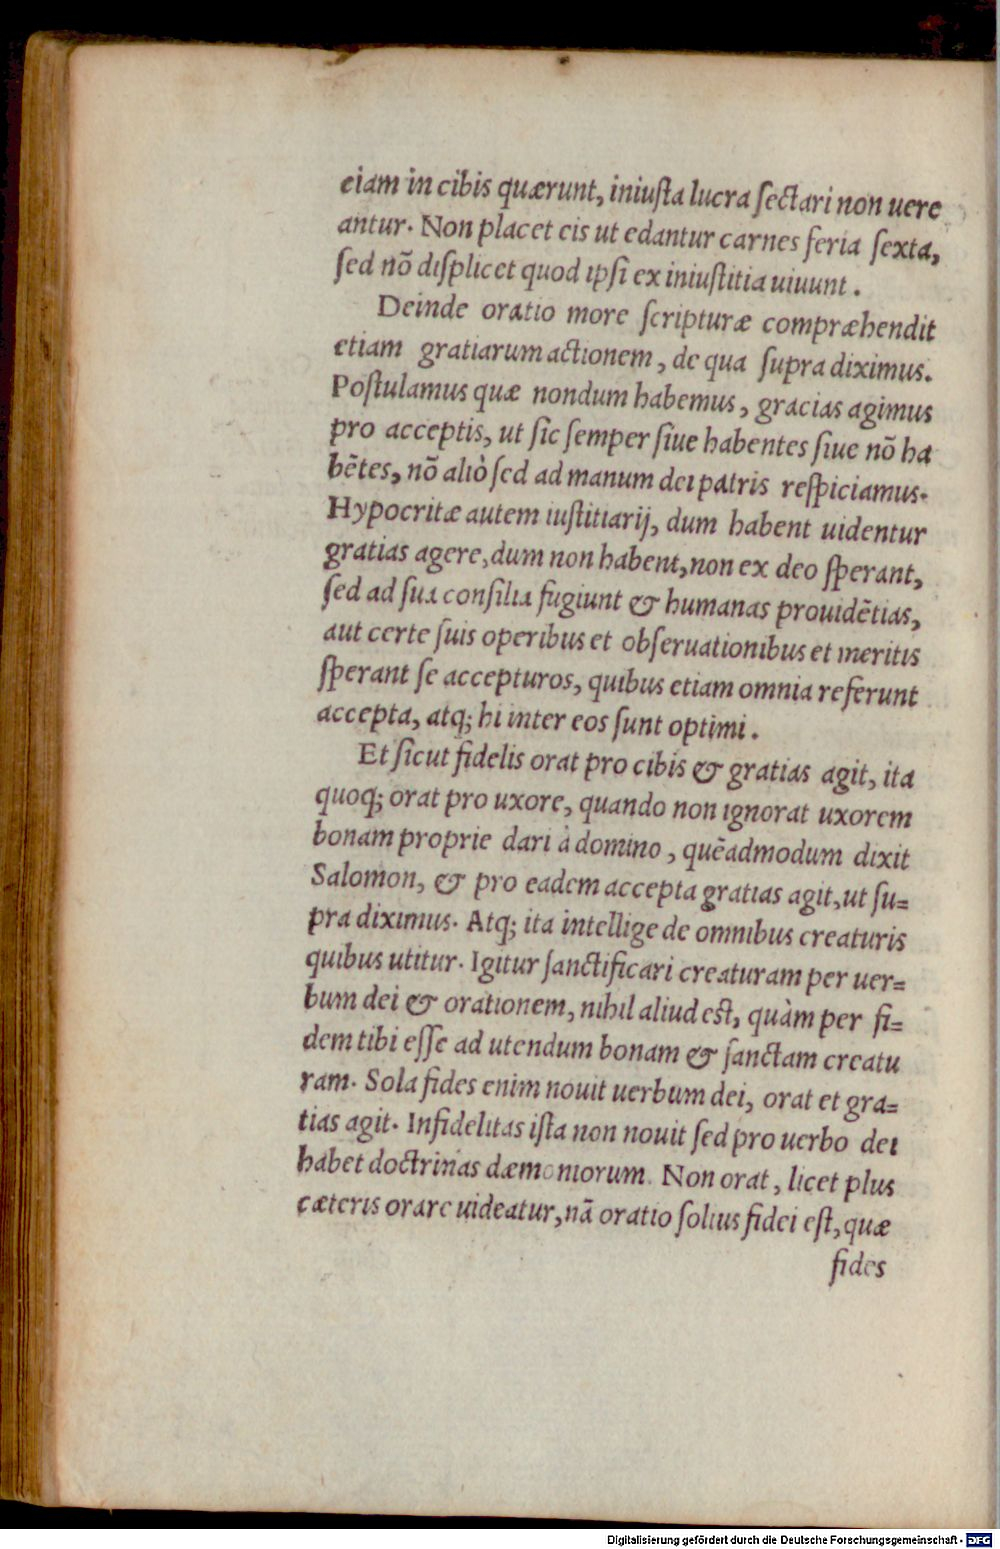 eiam in cibis quærunt, iniusta lucra sectari non uere
antur. Non placet eis ut edantur carnes feria sexta,
sed nõ displicet quod ipsi ex iniustitia uiuunt.
Deinde oratio more scripturæ compræhendit
etiam gratiarum actionem, de qua supra diximus.
Postulamus quæ nondum habemus, gracias agimus
pro acceptis, ut sic semper siue habentes siue nõ ha
bẽtes, nõ aliò sed ad manum dei patris respiciamus.
Hypocritæ autem iustitiarij, dum habent uidentur
gratias agere, dum non habent, non ex deo sperant,
sed ad sua consilia fugiunt & humanas prouidẽtias,
aut certe suis operibus et obseruationibus et meritis
sperant se accepturos, quibus etiam omnia referunt
accepta, atq; hi inter eos sunt optimi.
Et sicut fidelis orat pro cibis & gratias agit, ita
quoq; orat pro uxore, quando non ignorat uxorem
bonam proprie dari à domino, quẽadmodum dixit
Salomon, & pro eadem accepta gratias agit, ut su=
pra diximus. Atq; ita intellige de omnibus creaturis
quibus utitur. Igitur sanctificari creaturam per uer=
bum dei & orationem, nihil aliud est, quàm per fi=
dem tibi esse ad utendum bonam & sanctam creatu
ram. Sola fides enim nouit uerbum dei, orat et gra=
tias agit. Infidelitas ista non nouit sed pro uerbo dei
habet doctrinas dæmoniorum. Non orat, licet plus
cæteris orare uideatur, nã oratio solius fidei est, quæ
fides
Digitalisierung gefördert durch die Deutsche Forschungsgemeinschaft - DFG